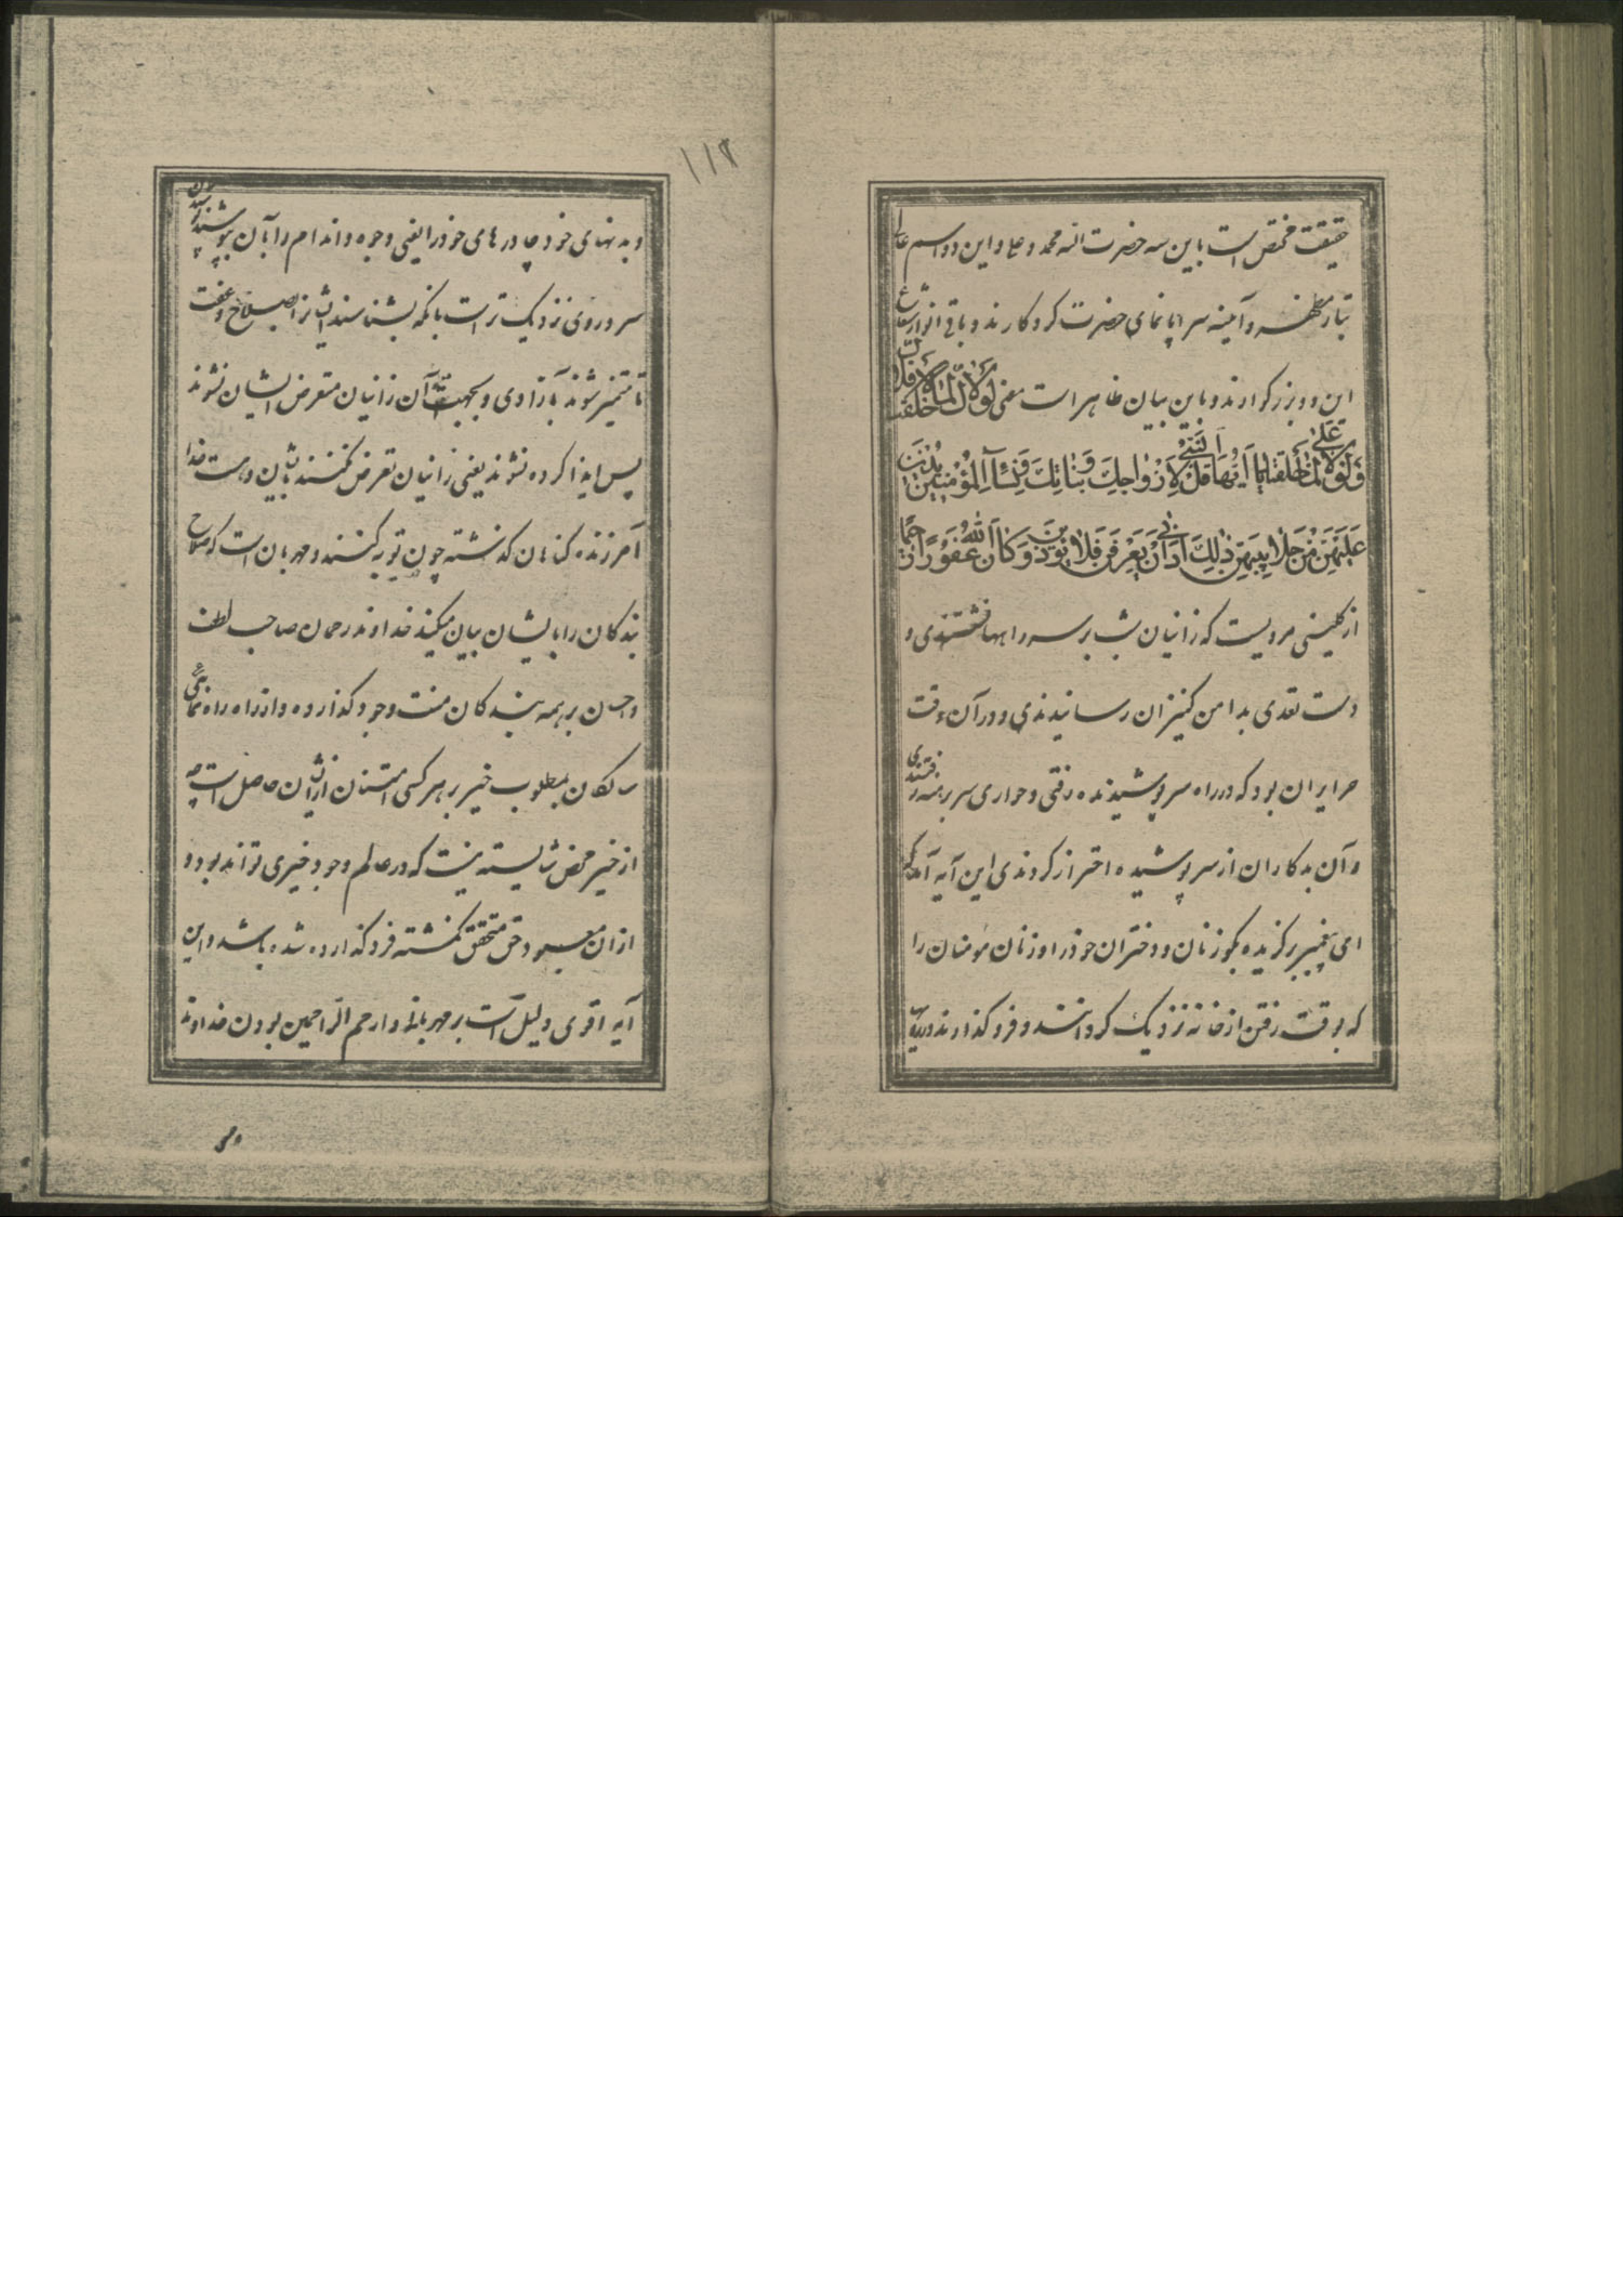 حقیقت مختص است باین سه حضرت الله محمد و علی و این دو اسم عالی
تبار مظهر و آمینه سراپا نمای حضرت کردکارند و باقی انوار شعاع
این دو بزرکوارند و باین بیان ظاهر است معنی لولاک لما خلقت الافلاک
ولولا علی لما خلقتک یا ایها النبی قل لازواجک وبناتک ونساء المؤمنین یدنین
علیهن من جلابیبهن ذلک ادنی ان یعرفن فلا یؤذین وکان الله غفورا رحیما
از کلینی مرویست که زانیان شب برسر راهها نشستندی و
دست تعدی بدامن کنیزان رسانیدندی و در آن وقت
حرایران بود که در راه سر پوشیده رفتی و جواری سر برهنه رفتندی
و آن بدکاران از سر پوشیده احتراز کردندی این آیه آمد که
ای پیغمبر برکزیده بکو زنان و دختران خود را و زنان مومنان را
که بوقت رفتن از خانه نزدیک کردانند و فرو کذارند بر رویها
۱۱۲
و بدنهای خود چادرهای خود را یعنی وجوه و اندام را بآن بپوشند این پوشیدن
سر و روی نزدیک تر است بانکه بشناسند ایشانرا بصلاح و عفت
تا متمیز شوند بآزادی و بجهت آن زانیان متعرض ایشان نشوند
پس ایذا کرده نشوند یعنی زانیان تعرض نکنند بایشان و هست خدا
آمرزنده کناهان کذشته چون توبه کنند و مهربان است که صلاح
بندکان را بایشان بیان میکند خداوند رحمان صاحب لطف
و احسان بر همه بندکان منت وجود کذارده و از راه راه نمائی
سالکان بمطلوب خیر بر هر کسی امتنان از ایشان حاصل است چه
از خیر محض شایسته نیست که در عالم وجود خیری تواند بود و
از ان معبود حق متحقق نکشته فرو کذارده شده باشد و این
آیه اقوی دلیل است بر مهربانی و ارحم الراحمین بودن خداوند